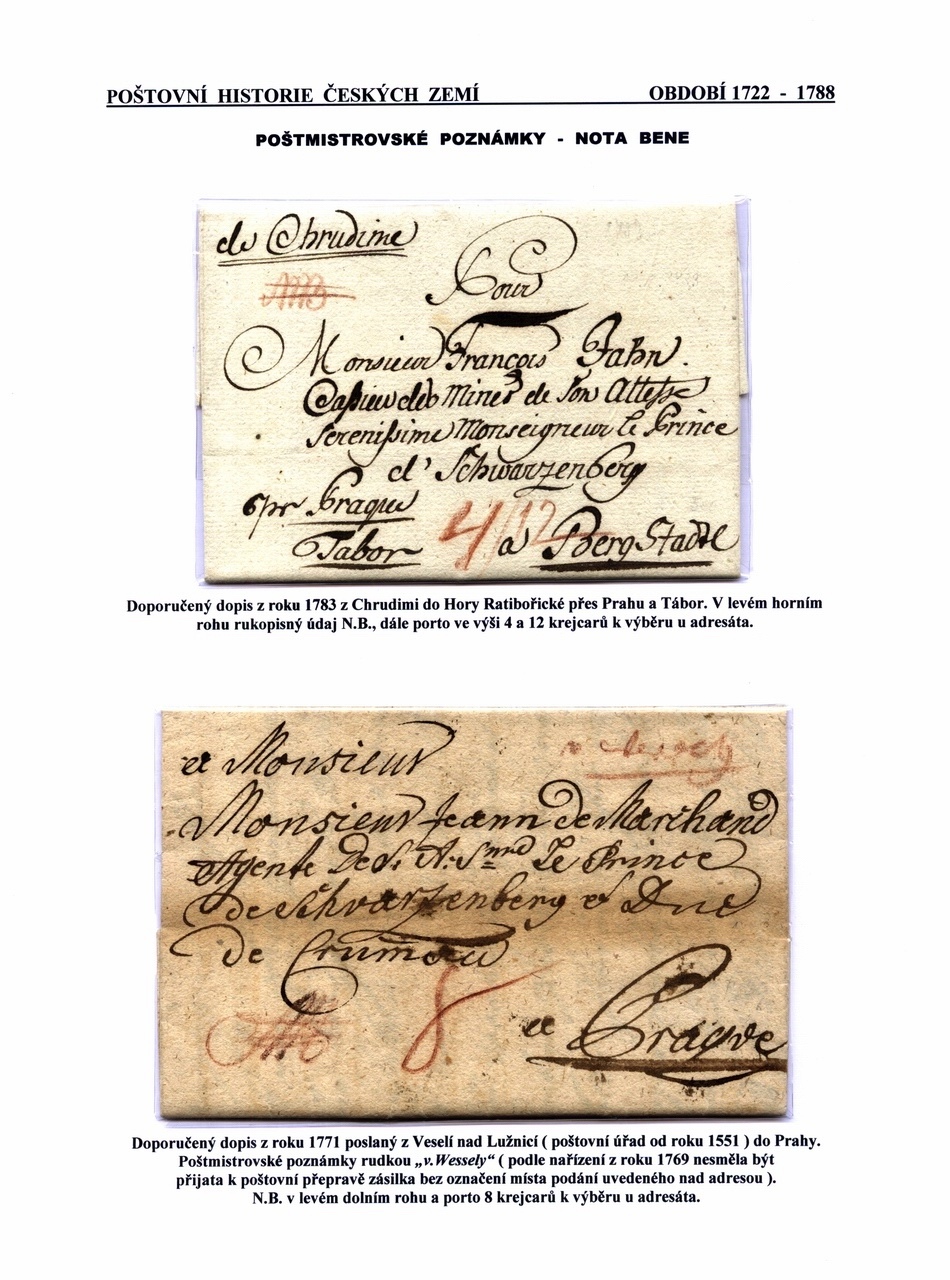 POŠTOVNÍ HISTORIE ČESKÝCH ZEMÍ OBDOBÍ 1722 - 1788
POŠTMISTROVSKÉ POZNÁMKY - NOTA BENE
de Chrudime
NB
Pour
Monsieur François Jahn.
Cassieur des Mines de Son Altesse
Serenissime Monseigneur le Prince
d' Schwarzenberg
per Prague
Tabor 4/12 a BergStadtl
Doporučený dopis z roku 1783 z Chrudimi do Hory Ratibořické přes Prahu a Tábor. V levém horním
rohu rukopisný údaj N.B., dále porto ve výši 4 a 12 krejcarů k výběru u adresáta.
a Monsieur
Monsieur Jeann de Marchand
Agente De S: A: le Prince
de Schvarzenberg et Duc
de Crumau
NB 8 a Prague
Doporučený dopis z roku 1771 poslaný z Veselí nad Lužnicí ( poštovní úřad od roku 1551 ) do Prahy.
Poštmistrovské poznámky rudkou „v.Wessely“ ( podle nařízení z roku 1769 nesměla být
přijata k poštovní přepravě zásilka bez označení místa podání uvedeného nad adresou ).
N.B. v levém dolním rohu a porto 8 krejcarů k výběru u adresáta.